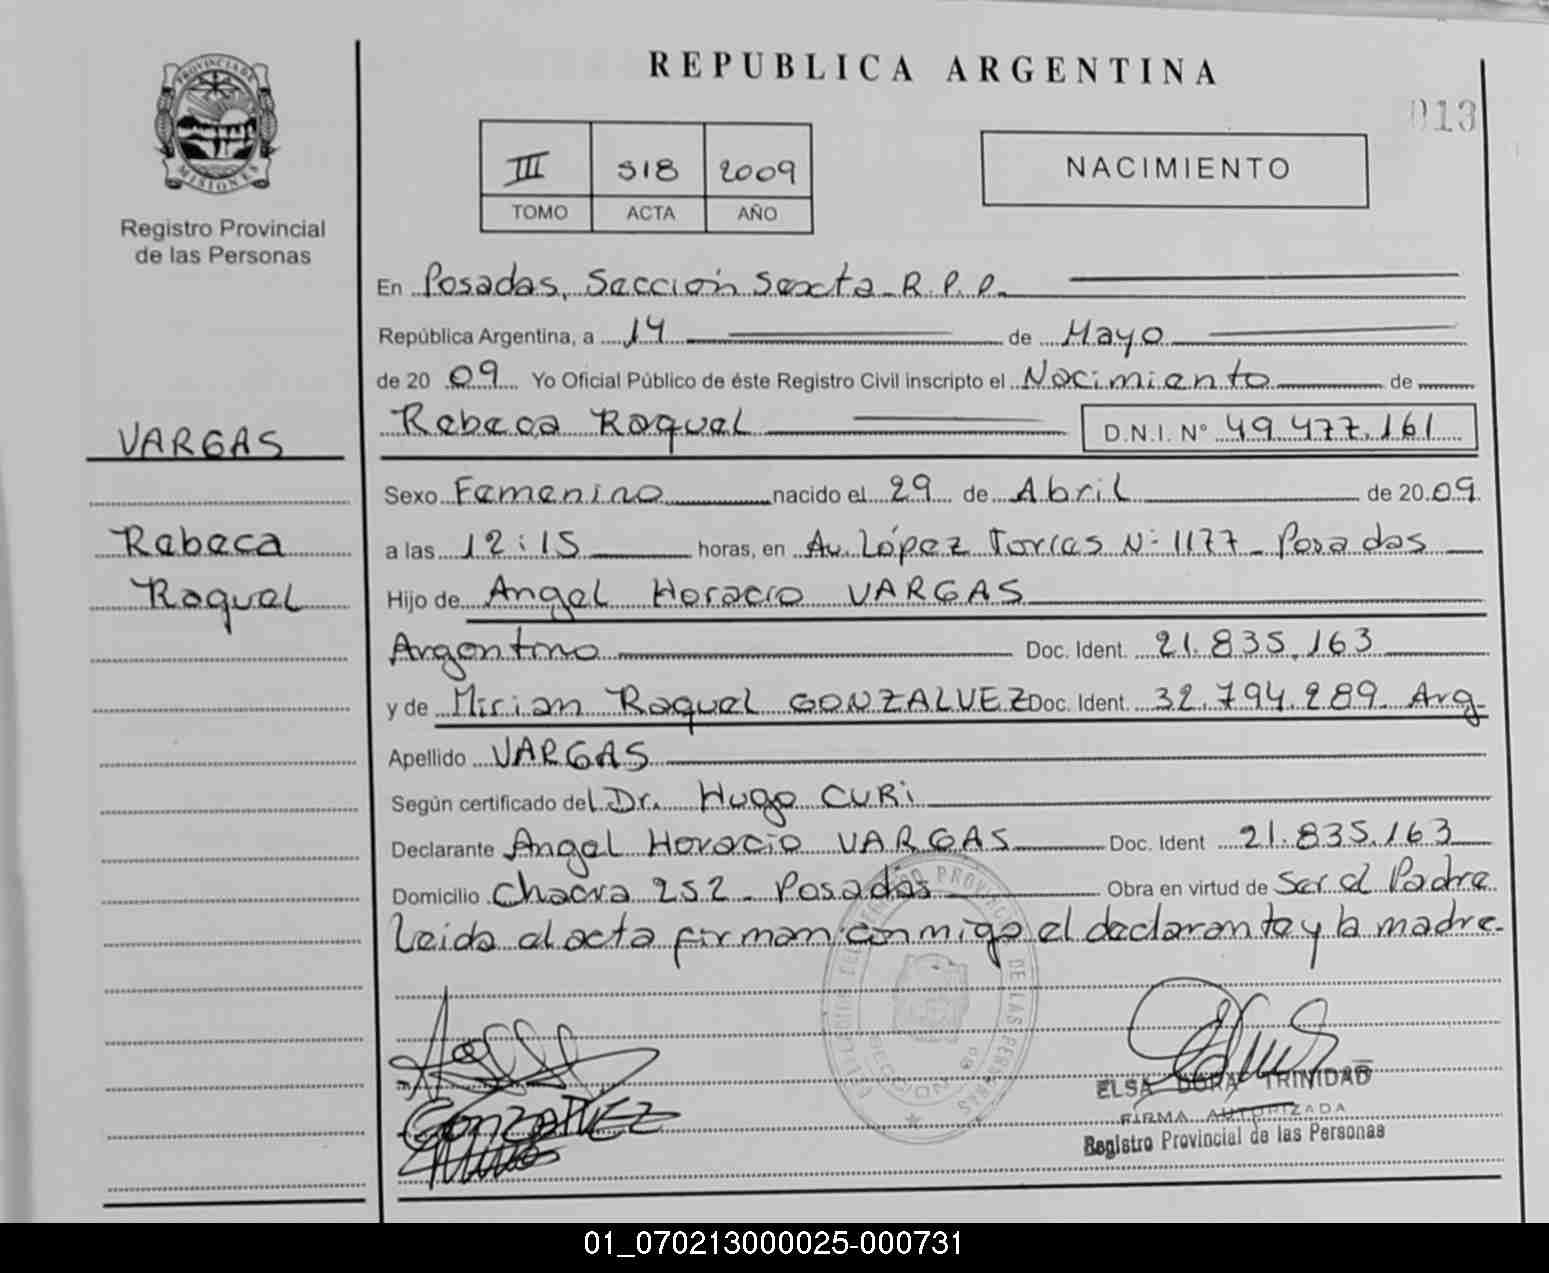 REPUBLICA ARGENTINA
013
PROVINCIA DE
MISIONES
Registro Provincial
de las Personas
III 518 2009
TOMO ACTA AÑO
NACIMIENTO
En Posadas, Sección Sexta R.P.P.
República Argentina, a 14 de Mayo
de 20 09 Yo Oficial Público de éste Registro Civil inscripto el Nacimiento de
Rebeca Raquel D.N.I. N° 49.477.161
VARGAS
Rebeca
Raquel
Sexo Femenino nacido el 29 de Abril de 20 09
a las 12:15 horas, en Av. López Torres N° 1177 - Posadas
Hijo de Angel Horacio VARGAS
Argentino Doc. Ident. 21.835.163
y de Mirian Raquel GONZALVEZ Doc. Ident. 32.794.289 Arg
Apellido VARGAS
Según certificado del Dr. Hugo CURi
Declarante Angel Horacio VARGAS Doc. Ident 21.835.163
Domicilio Chacra 252 - Posadas Obra en virtud de Ser el Padre
Leida el acta firman conmigo el declarante y la madre.
PROVINCIAL DE LAS PERSONAS
SECCION 6ª
GONZALVEZ
ELSA DORA TRINIDAD
FIRMA AUTORIZADA
Registro Provincial de las Personas
01_070213000025-000731